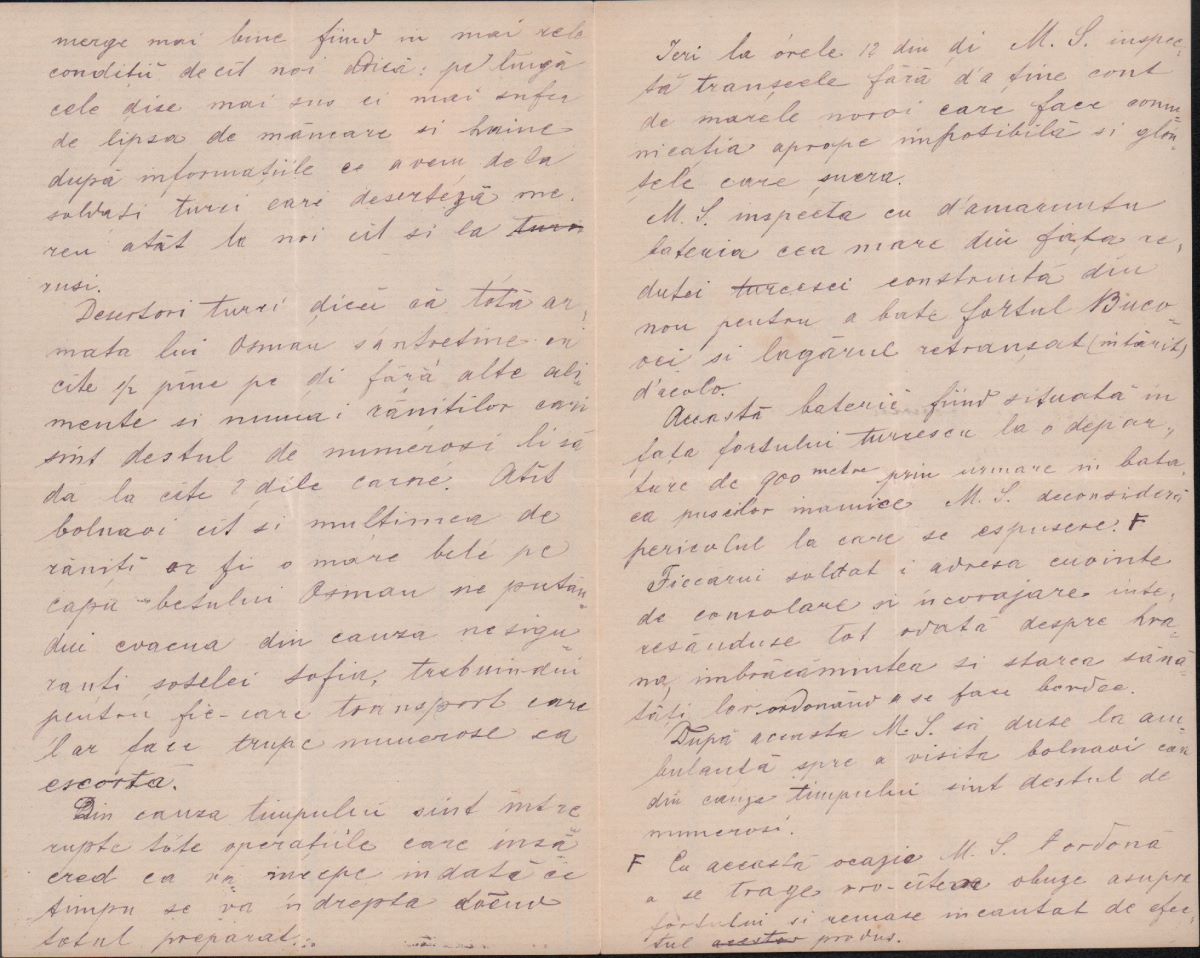 merge mai bine fiind in mai rele
conditii decit noi adică: pe lîngă
cele dise mai sus ei mai sufer
de lipsa de mâncare si haine
după informațiile ce avem de la
soldați turci cari deserteză me.
reu atât la noi cît si la turci
rusi.
Desertori turci dicii că tótă ar,
mata lui Osman săntretine cu
cîte 1/2 pîne pe di fără alte ali,
mente si numai răniților cari
sint destul de numerosi li să
dă la cîte 2 dile carne. Atît
bolnavi cît si multimea de
răniți or fi o mare bele pe
capu betului Osman ne putân
dui evacua din cauza nesigu
ranti soselei Sofia, trebuindui
pentru fie-care transport care
lar face trupe numerose ca
escortă.
Din cauza timpului sint între
rupte tóte operatiile care însă
cred ca va începe indată ce
timpu se va îndrepta
totul preparat.
Ieri la órele 12 din di M. S. inspec-
tă transeele fără d'a ține cont
de marele noroi care face comu-
nicația aprope imposibilă si glon-
țele care șuera.
M. S. inspecta cu d'amaruntu
bateria cea mare din fața re,
dutei turcesci construită din
nou pentru a bate fortul Buco-
vei si lagărul retranșat (intărit)
d'acolo.
Acestă baterie fiind situată in
fața fortului turcescu la o depăr,,
tare de 900 metre prin urmare in bata,
ea puscilor inamice M. S. deconsideră
pericolul la care se espusere. F
Fiecărui soldat i adresa cuvinte
de consolare si incorajare inte,
resânduse tot odată despre hra-
na, imbrăcămintea si starea sănă-
tăți lor ordonând a se face bordee.
După aceasta M. S. să duse la am
bulanță spre a visita bolnavi cari
din cauza timpului sint destul de
numerosi.
F Cu această ocazie M. S. ordonă
a se trage vro-cîteva obuze asupra
fortului si remase incantat de efec-
tul acestor produs.